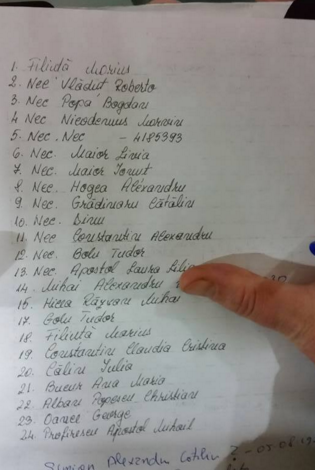 1. Filiuță Marius
2. Nec Vlăduț Roberto
3. Nec Popa Bogdan
4 Nec Nicodemus Marvin
5. Nec. Nec - 4185393
6. Nec. Maior Linia
7. Nec. Maior Ionut
8. Nec. Hogea Alexandru
9. Nec. Grădinaru Cătălin
10. Nec. Dinu
11. Nec Constantin Alexandru
12. Nec. Botu Tudor
13. Nec. Apostol Laura Lilia
14. Mihai Alexandru
15. Răzvan Mihai
17. Gotu Tudor
18. Filiuță Marius
19. Constantin Claudia Cristina
20. Călin Iulia
21. Bucur Ana Maria
22. Alban Popescu Christian
23. Daniel George
24. Profirescu Apostol Mihail
Simion Alexandru